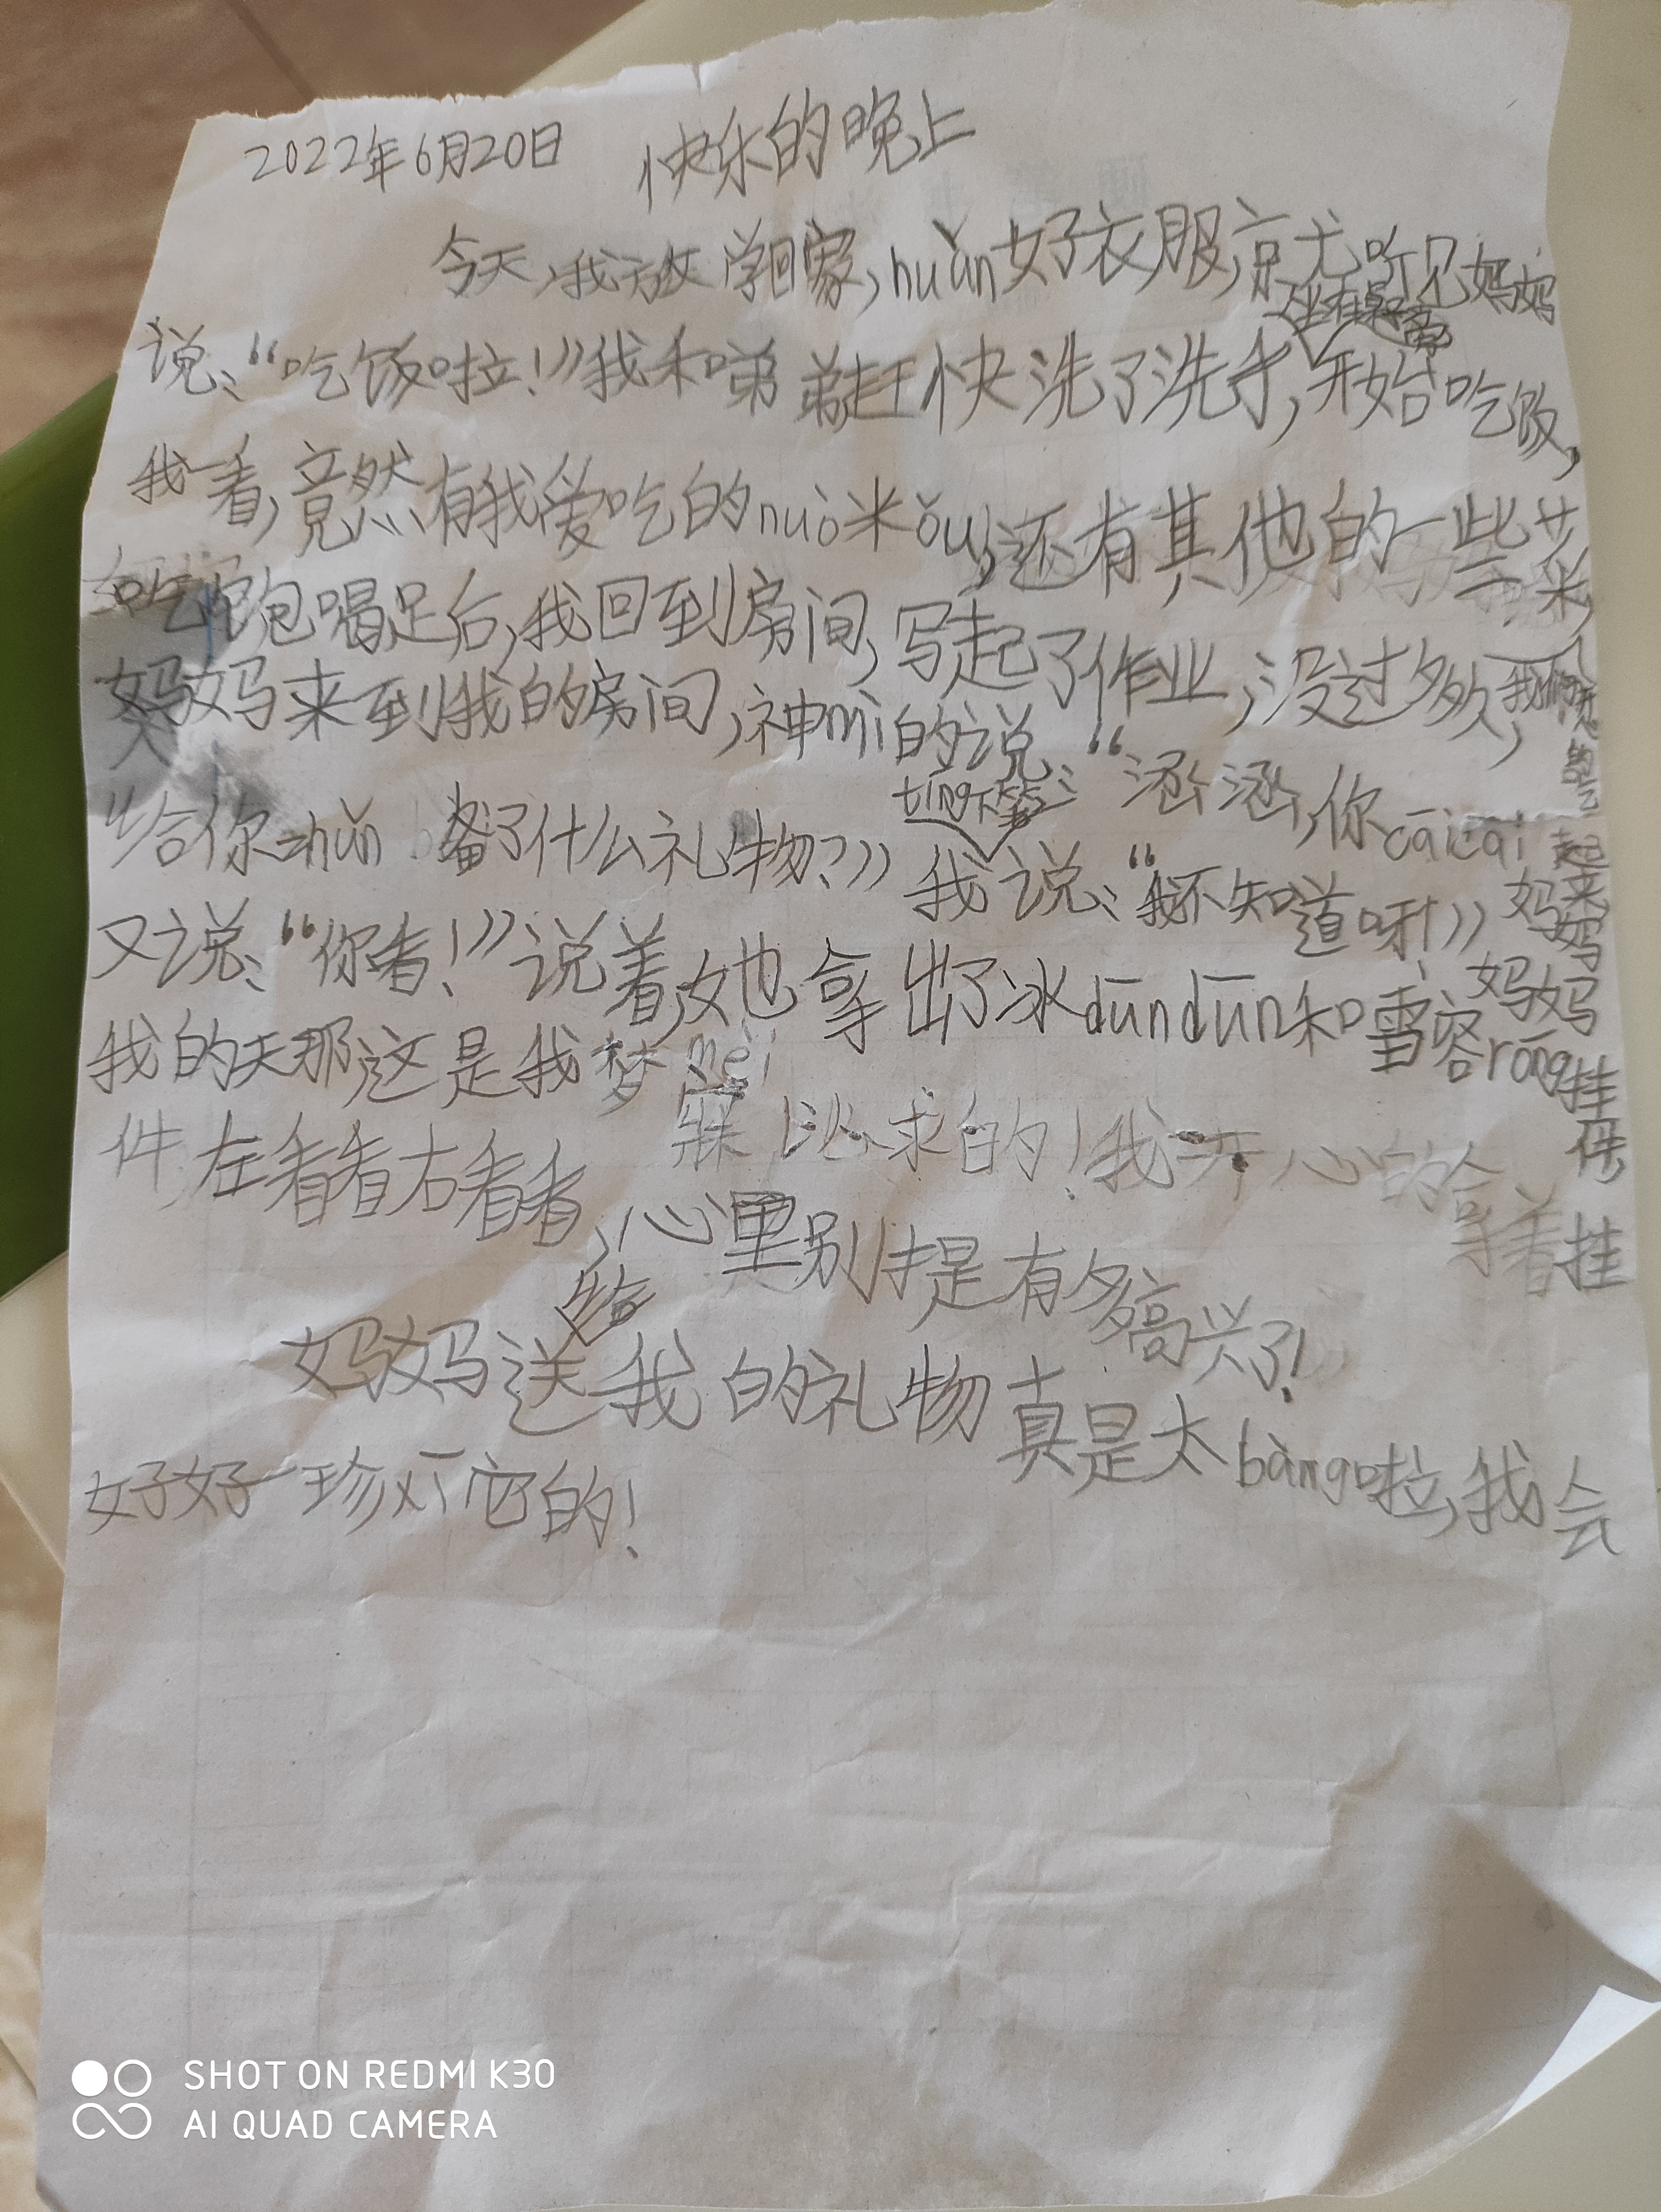 2022年6月20日 快乐的晚上
今天,我放学回家,huàn好衣服,就听见妈妈
坐在桌
说:“吃饭啦!”我和弟弟赶快洗了洗手,开始吃饭,
我一看,竟然有我爱吃的nuò米ǒu,还有其他的一些菜,
吃饱喝足后,我回到房间,写起了作业,没过多久,
妈妈来到我的房间,神mì的说:“涵涵,你cāicai
给你zhǔn备了什么礼物?”我tíng下笔说:“我不知道呀!”妈妈
又说:“你看!”说着,她拿出了冰dūndūn和雪容róng挂件
我的天那,这是我梦mèi
寐以求的!我开心的拿着挂
件,左看看右看看,心里别提有多高兴了!
妈妈送给我的礼物真是太bàng啦,我会
好好珍惜它的!
SHOT ON REDMI K30
AI QUAD CAMERA